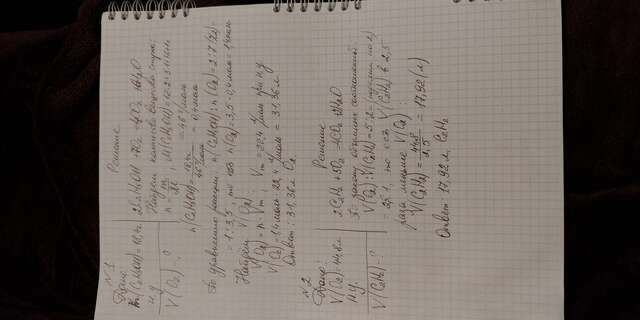 №1
Дано:
m(C₂H₅OH) = 18,4г.
н.у.
V(O₂) - ?
Решение
2C₂H₅OH + 7O₂ → 4CO₂ + 6H₂O
Найдём количество вещества спирта:
n = m/M, M(C₂H₅OH) =
n(C₂H₅OH) = 18,4г / 46г/моль = 0,4 моль
По уравнению реакции n(C₂H₅OH) : n(O₂) = 2:7 (2) =
= 1:3,5, то есть n(O₂) = 3,5 · 0,4 моль = 1,4 моль
Найдём V(O₂):
V(O₂) = n · Vm, Vm = 22,4 л/моль при н.у.
V(O₂) = 1,4 моль · 22,4 л/моль = 31,36 л.
Ответ: 31,36 л O₂
№2
Дано:
V(O₂) = 44,8 л
н.у.
V(C₂H₂) - ?
Решение
2C₂H₂ + 5O₂ → 4CO₂ + 2H₂O
По закону объёмных отношений:
V(O₂) : V(C₂H₂) = 5:2 =
= 2,5:1, то есть V(C₂H₂) в 2,5
раза меньше V(O₂):
V(C₂H₂) = 44,8 / 2,5 = 17,92 (л)
Ответ: 17,92 л. C₂H₂